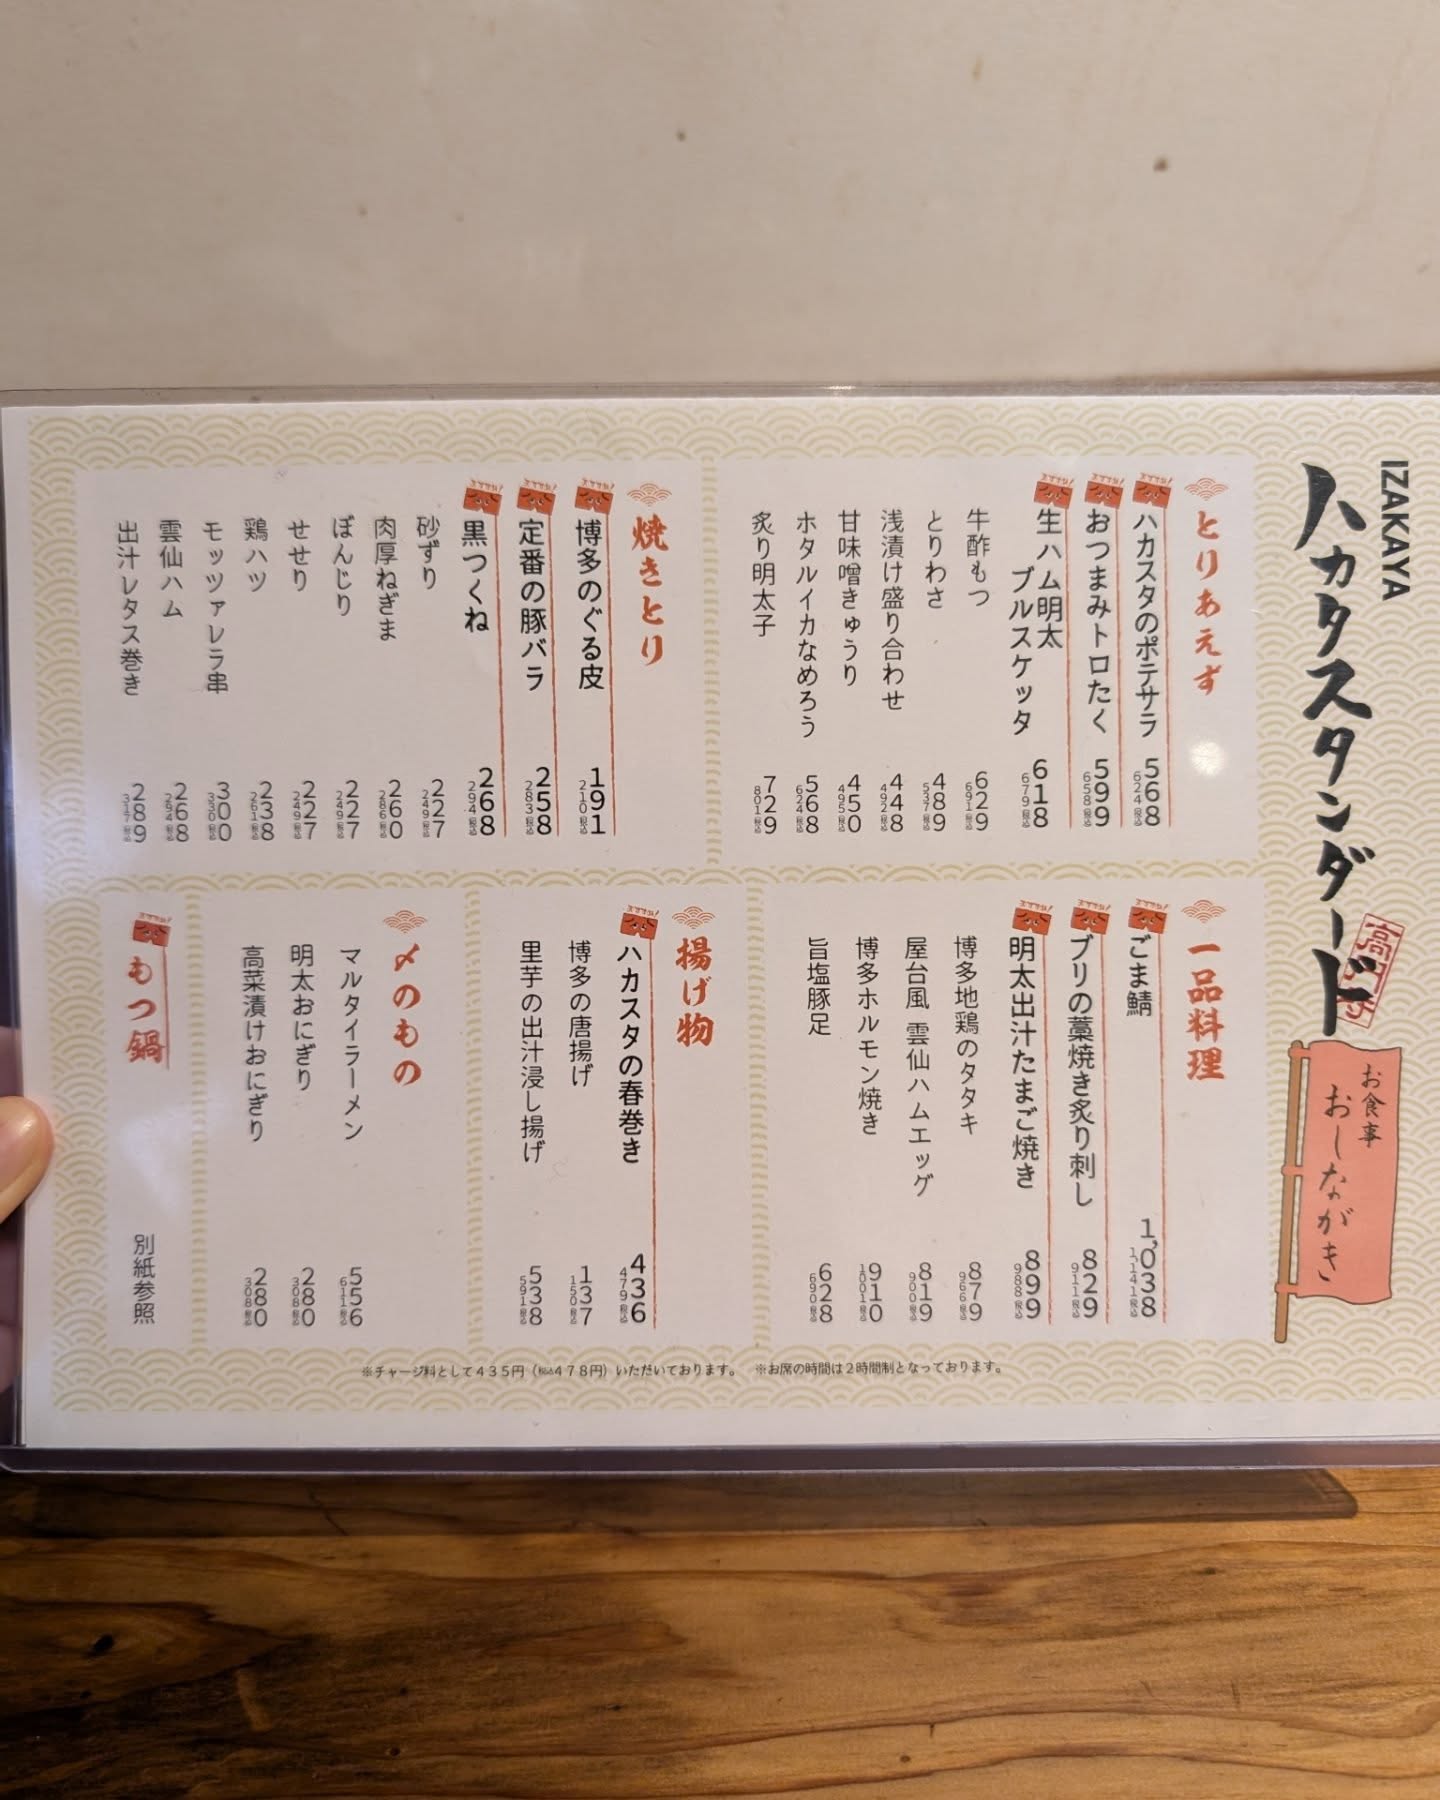 IZAKAYA
ハカタスタンダード
お食事
おしながき
とりあえず
ハカスタのポテサラ 568 624(税込)
おつまみトロたく 599 658(税込)
生ハム明太
ブルスケッタ 618 679(税込)
牛酢もつ 629 691(税込)
とりわさ 489 537(税込)
浅漬け盛り合わせ 448 492(税込)
甘味噌きゅうり 450 495(税込)
ホタルイカなめろう 568 624(税込)
炙り明太子 729 801(税込)
焼きとり
博多のぐる皮 191 210(税込)
定番の豚バラ 258 283(税込)
黒つくね 268 294(税込)
砂ずり 227 249(税込)
肉厚ねぎま 260 286(税込)
ぼんじり 227 249(税込)
せせり 227 249(税込)
鶏ハツ 238 261(税込)
モッツァレラ串 300 330(税込)
雲仙ハム 268 294(税込)
出汁レタス巻き 289 317(税込)
一品料理
ごま鯖 1,038 1,141(税込)
ブリの藁焼き炙り刺し 829 911(税込)
明太出汁たまご焼き 899 988(税込)
博多地鶏のタタキ 879 966(税込)
屋台風 雲仙ハムエッグ 819 900(税込)
博多ホルモン焼き 910 1001(税込)
旨塩豚足 628 690(税込)
揚げ物
ハカスタの春巻き 436 479(税込)
博多の唐揚げ 137 150(税込)
里芋の出汁浸し揚げ 538 591(税込)
〆のもの
マルタイラーメン 556 611(税込)
明太おにぎり 280 308(税込)
高菜漬けおにぎり 280 308(税込)
もつ鍋 別紙参照
※チャージ料として435円(税込478円)いただいております。 ※お席の時間は2時間制となっております。